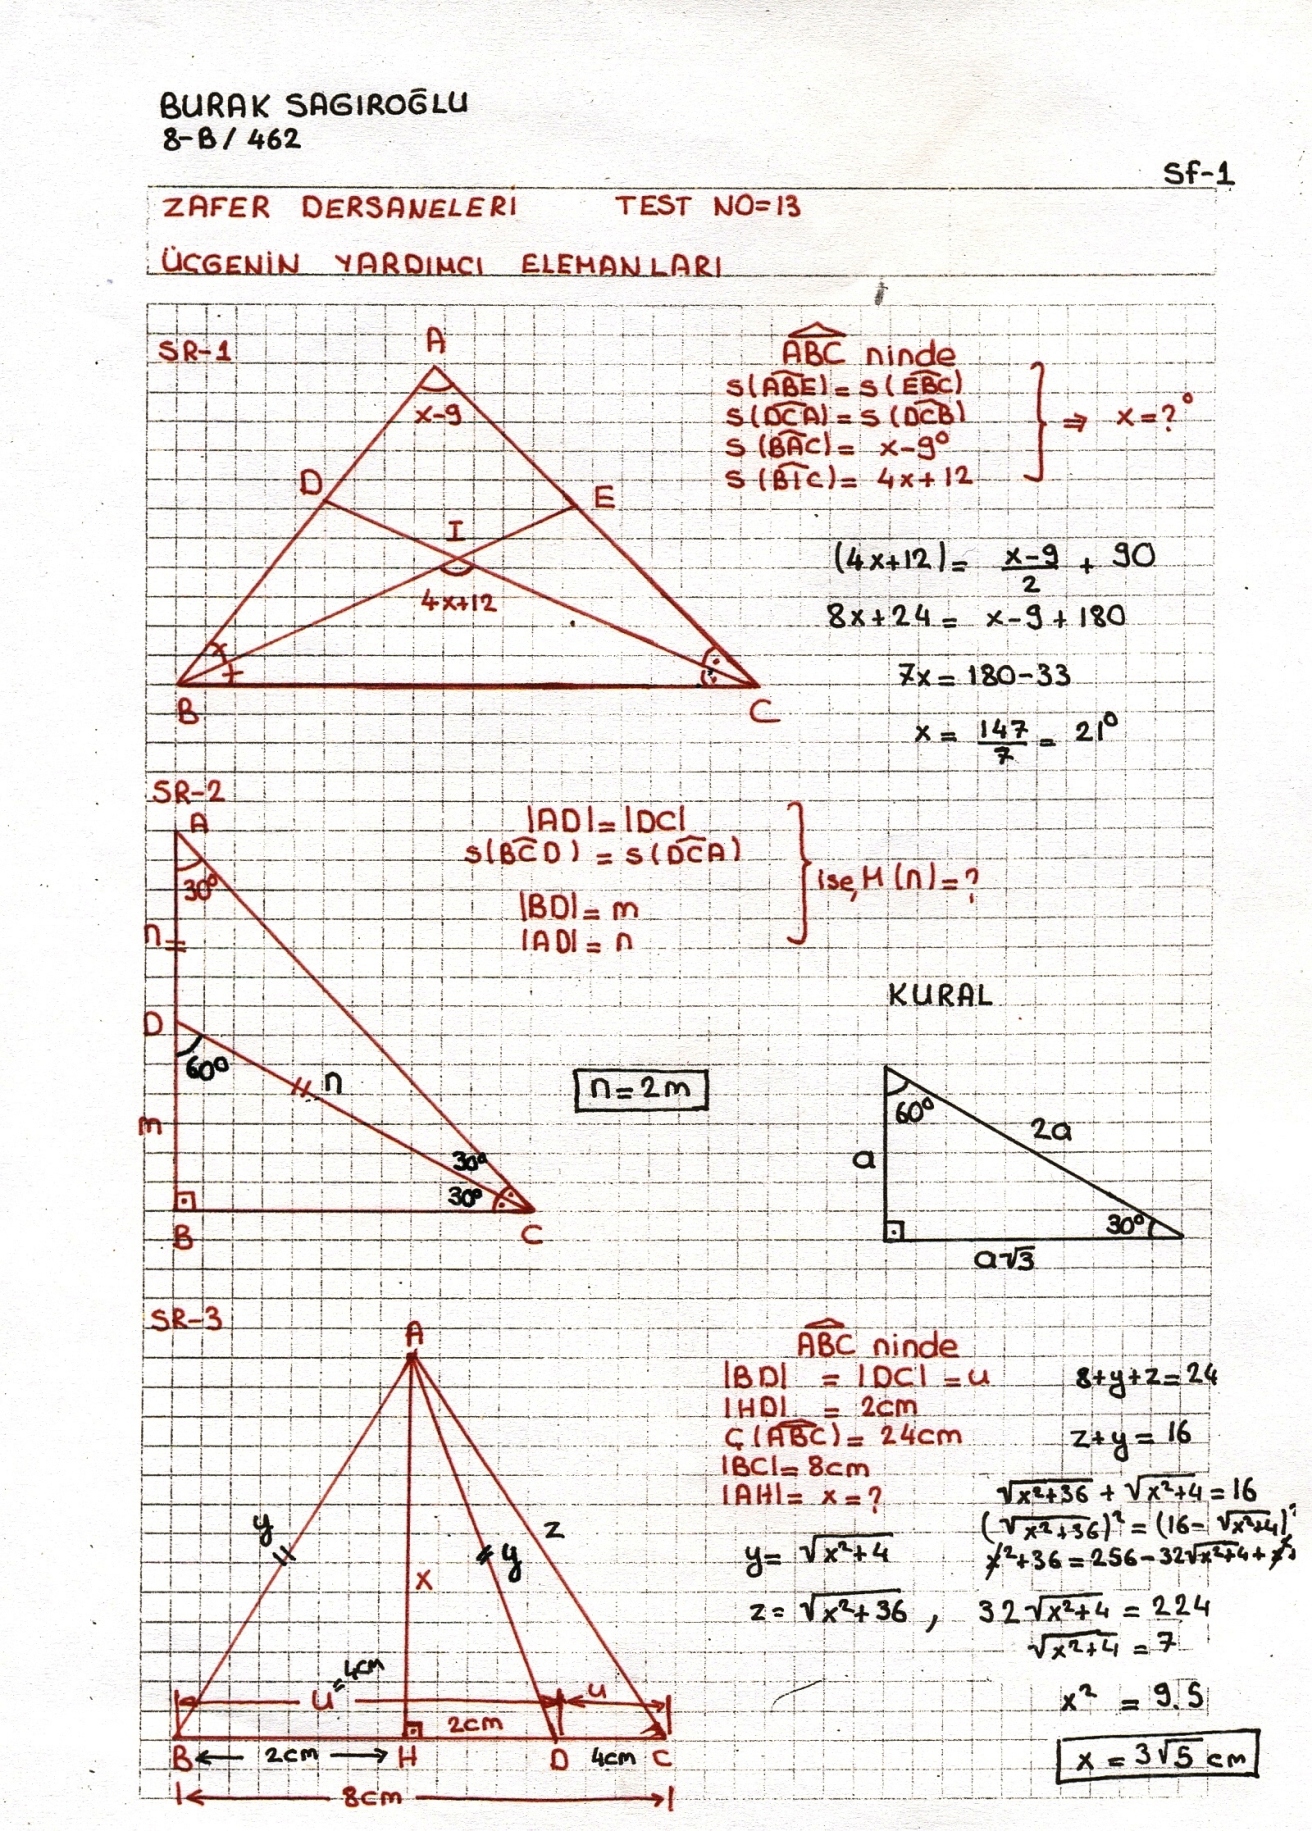 BURAK SAGIROĞLU
8-B / 462
Sf-1
ZAFER DERSANELERİ TEST NO=13
ÜÇGENİN YARDIMCI ELEMANLARI
SR-1
A
x-9
D
E
I
4x+12
B
C
ABC ninde
s(ABE) = s(EBC)
s(DCA) = s(DCB)
s(BAC) = x-9°
s(BIC) = 4x+12
⇒ x=?°
(4x+12) = (x-9)/2 + 90
8x+24 = x-9+180
7x = 180-33
x = 147/7 = 21°
SR-2
A
30°
n
D
60°
n
m
30°
30°
B
C
|AD| = |DC|
s(BCD) = s(DCA)
|BD| = m
|AD| = n
ise, M(n) = ?
n = 2m
KURAL
60°
2a
a
30°
a√3
SR-3
A
y
z
y
x
u = 4cm
u
2cm
B
2cm
H
D
4cm
C
8cm
ABC ninde
|BD| = |DC| = u
|HD| = 2cm
Ç(ABC) = 24cm
|BC| = 8cm
|AH| = x = ?
y = √x²+4
z = √x²+36 ,
8+y+z = 24
z+y = 16
√x²+36 + √x²+4 = 16
(√x²+36)² = (16-√x²+4)²
x²+36 = 256-32√x²+4 + x²+4
32√x²+4 = 224
√x²+4 = 7
x² = 9.5
x = 3√5 cm